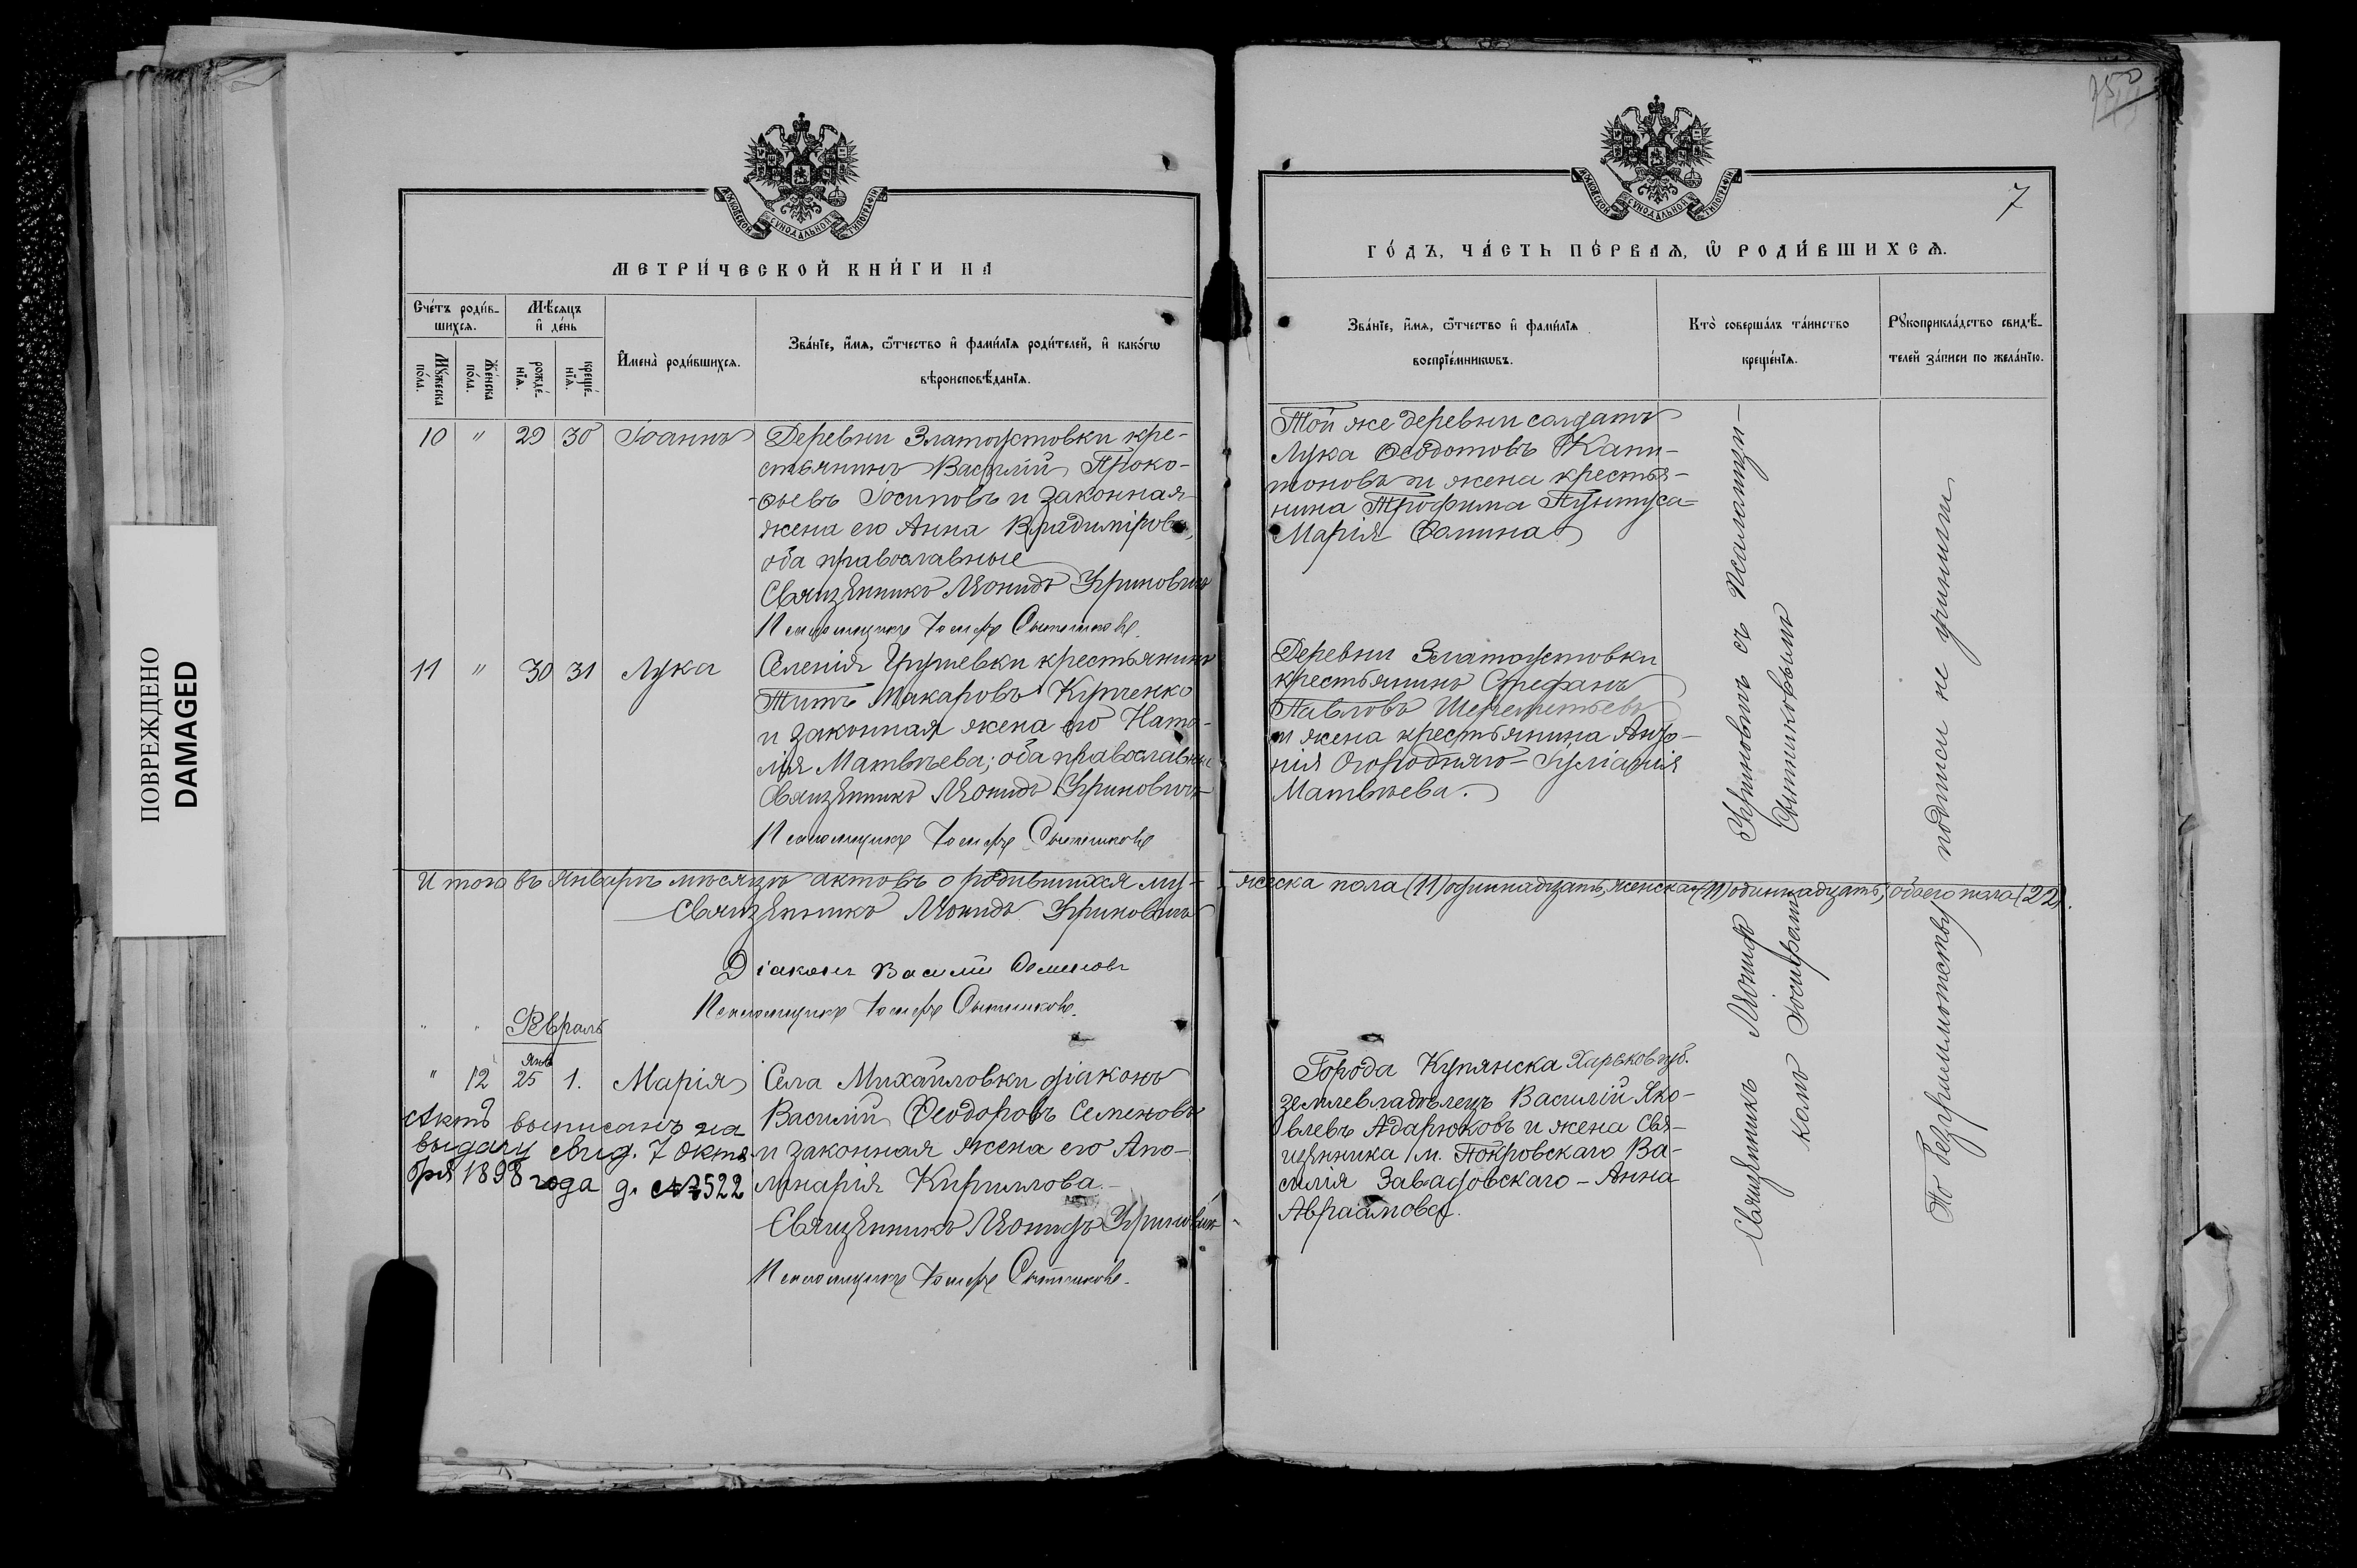 ПОВРЕЖДЕНО
DAMAGED
МЕТРИ́ЧЕСКОЙ КНИ́ГИ НА
Сче́тъ роди́в-
шихсѧ.
Мѣ́сѧцъ
и҆ де́нь
Мꙋ́жеска
по́ла.
Же́нска
по́ла.
рожде́-
нїѧ.
креще́-
нїѧ.
И҆мена̀ роди́вшихсѧ.
Зва́нїе, и҆́мѧ, ѻ҆́тчество и҆ фами́лїѧ роди́телей, и҆ како́гѡ
вѣроисповѣ́данїѧ.
10 " 29 30 Іоаннъ
Деревни Златоустовки кре-
стьянинъ Василій Проко-
фьевъ Іосиповъ и законная
жена его Анна Владимірова,
оба православные
Священникъ Леонидъ
Псаломщикъ Іосифъ Сытниковъ.
11 " 30 31 Лука
Селенія Грушевки крестьянинъ
Титъ Макаровъ Курченко
и законная жена его Ната-
лія Матвѣева; оба православные
Священникъ Леонидъ
Псаломщикъ Іосифъ Сытниковъ
Итого въ Январѣ мѣсяцѣ актовъ о родившихся му-
Священникъ Леонидъ
Діаконъ Василій Семеновъ
Псаломщикъ Іосифъ Сытниковъ.
" " Февраль
" 12 Янв 25 1. Марія
Села Михайловки діаконъ
Василій Ѳеодоровъ Семеновъ
и законная жена его Апо-
линарія Кириллова.
Священникъ Леонидъ
Псаломщикъ Іосифъ Сытниковъ.
Актъ выписанъ на
выдачу свид. 7 Октя-
бря 1898 года д. №522
7
ГО́ДЪ, ЧА́СТЬ ПЕ́РВАѦ, Ѡ҆ РОДИ́ВШИХСѦ.
Зва́нїе, и҆́мѧ, ѻ҆́тчество и҆ фами́лїѧ
воспрїе́мникѡвъ.
Кто̀ соверша́лъ та́инство
креще́нїѧ.
Рꙋкоприкла́дство свидѣ́-
телей за́писи по жела́нїю.
Той же деревни солдатъ
Лука Ѳеодотовъ Капи-
тоновъ и жена крестья-
нина Трофима Пунтуса
Марія Фомина
Деревни Златоустовки
крестьянинъ Стефанъ
Павловъ Шереметьевъ
и жена крестьянина Анто-
нія Огородняго Гликерія
Матвѣева.
жеска пола (11) одиннадцать, женска (11) одиннадцать, обоего пола (22).
Города Купянска Харьков. губ.
землевладѣлецъ Василій Яко-
влевъ Адарюковъ и жена Свя-
щенника м. Покровскаго Ва-
силія Завадовскаго - Анна
Авраамова.
Священникъ Леонидъ съ псаломщи-
комъ Іосифомъ Сытниковымъ
По безграмотству подписи не учинили